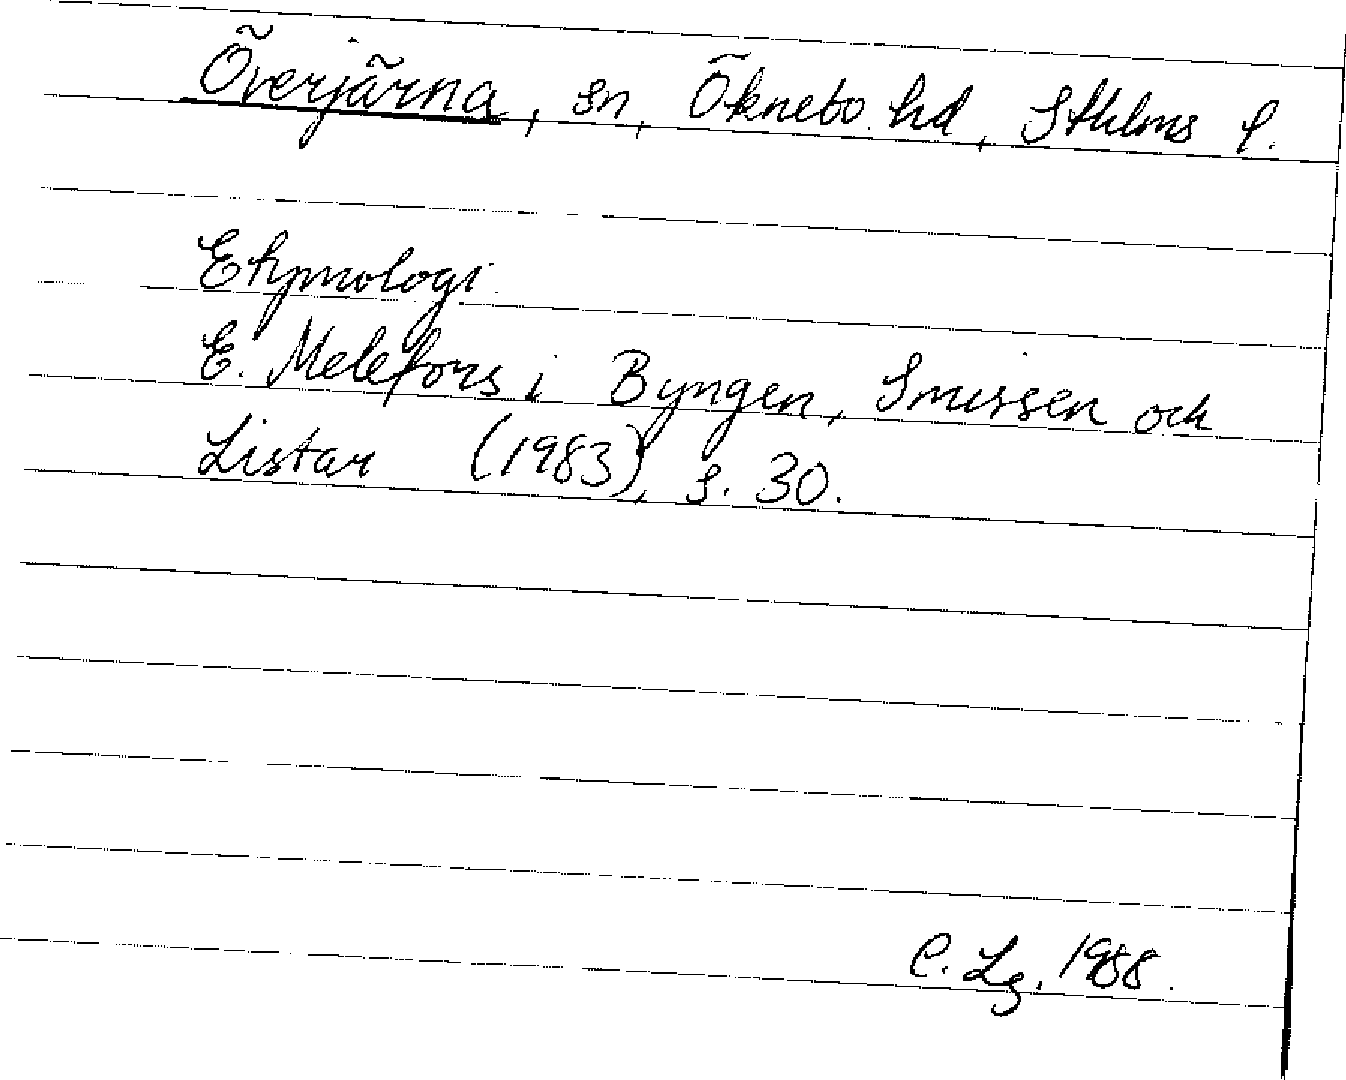 Överjärna, sn, Öknebo hd, Sthlms l.
Etymologi.
E. Melefors i Byngen, Smissen och
Listar (1983), s. 30.
C. Lg. 1988.